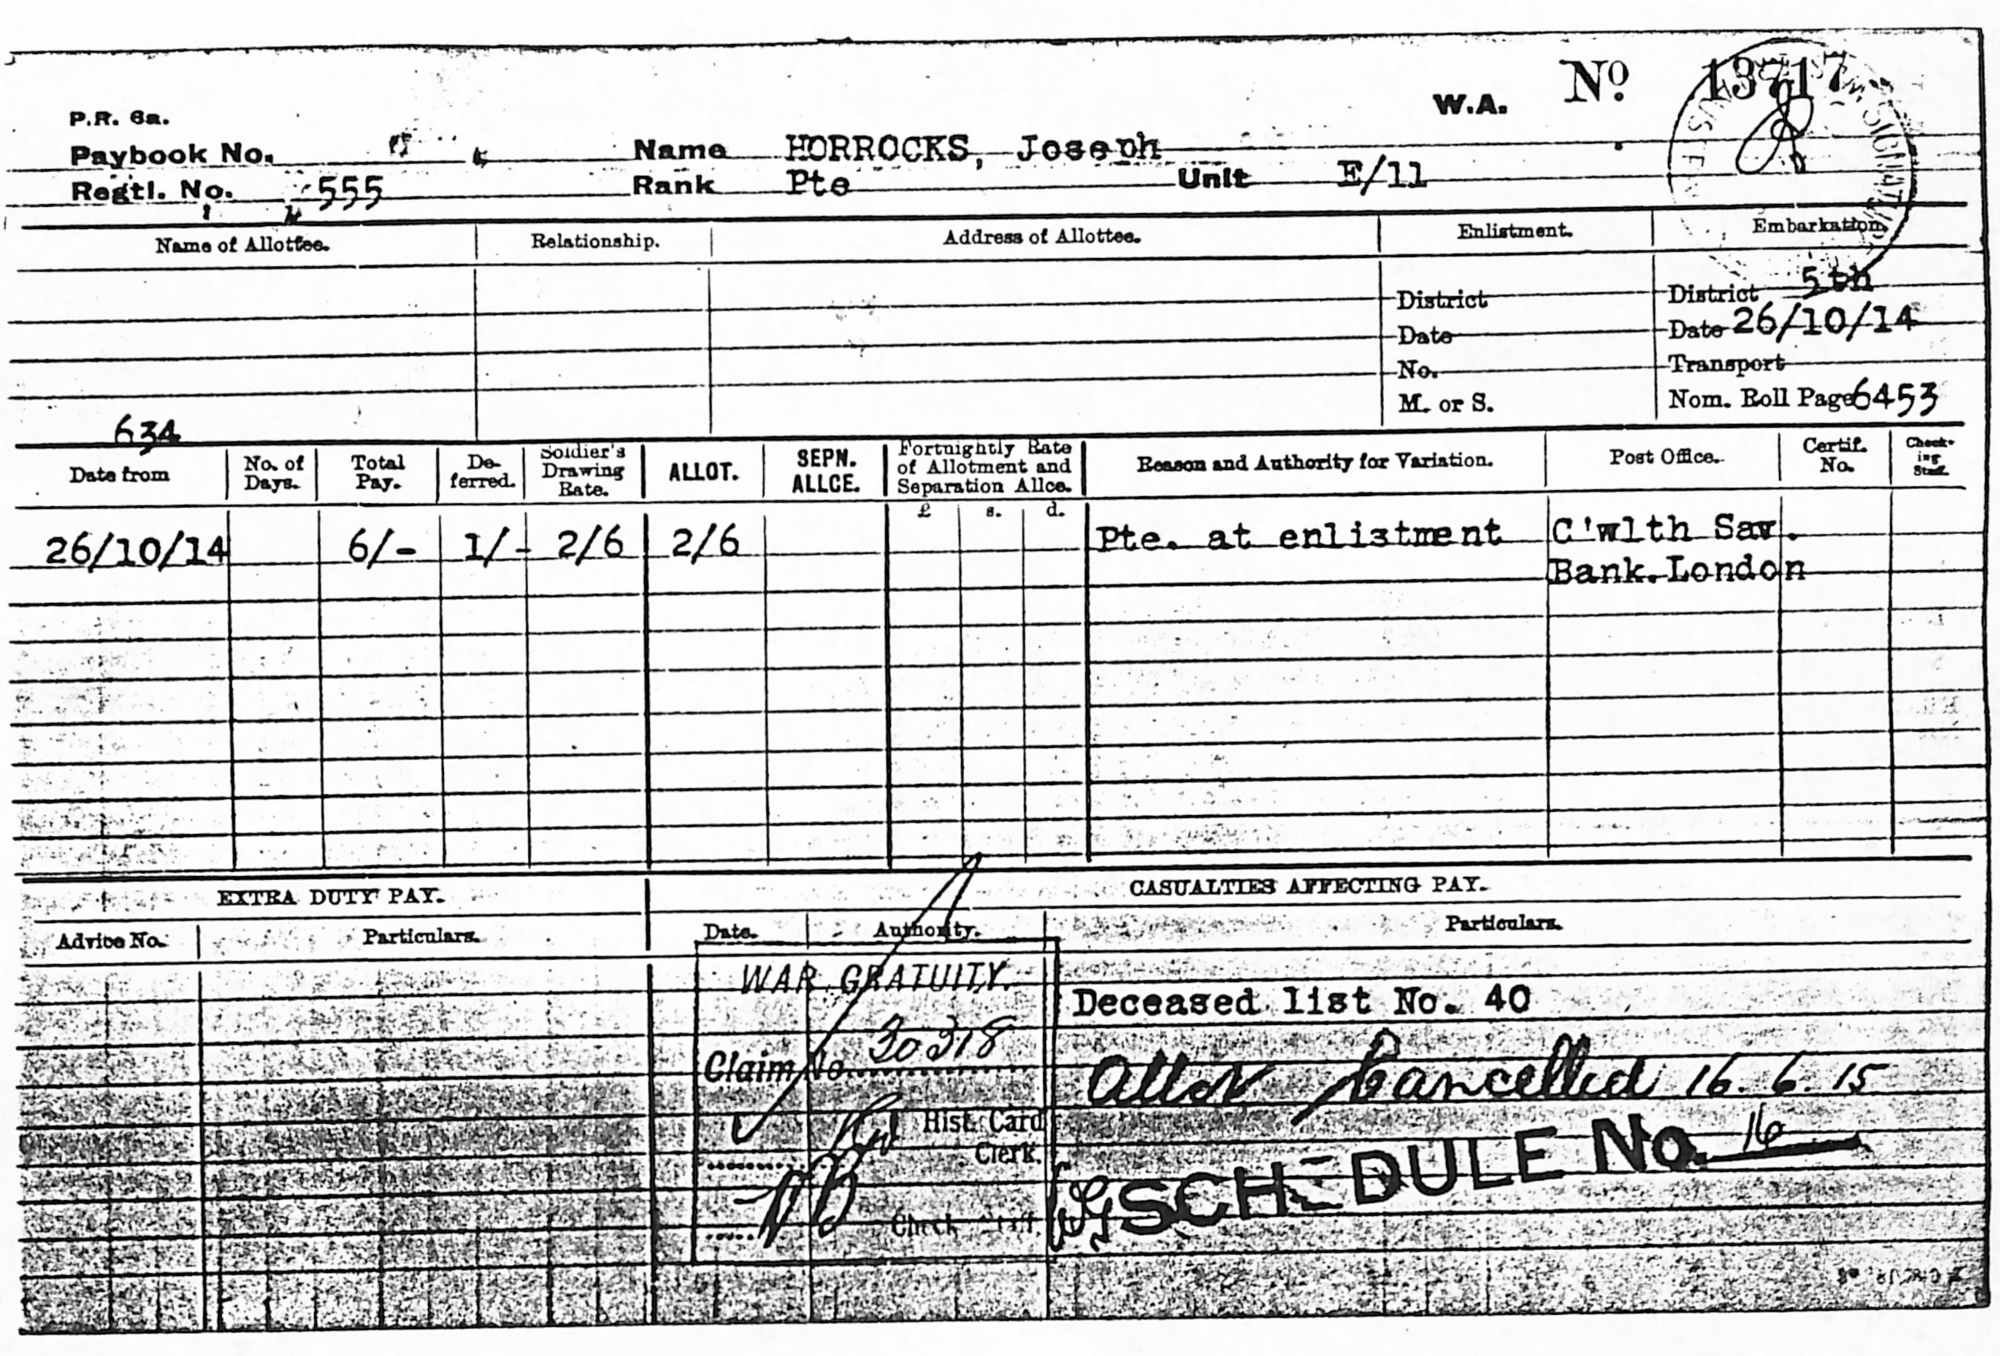 P.R. 6a.
W.A. No 13717
Paybook No.
Name HORROCKS, Joseph
Regtl. No. 555
Rank Pte
Unit E/11
Name of Allottee. Relationship. Address of Allottee. Enlistment. Embarkation.
District District 5th
Date Date 26/10/14
No. Transport
M. or S. Nom. Roll Page 6453
634
Date from No. of Days. Total Pay. De-ferred. Soldier's Drawing Rate. ALLOT. SEPN. ALLCE. Fortnightly Rate of Allotment and Separation Allce. Reason and Authority for Variation. Post Office. Certif. No. Check-ing Staff.
£ s. d.
26/10/14 6/- 1/- 2/6 2/6 Pte. at enlistment C'wlth Sav.
Bank. London
EXTRA DUTY PAY. CASUALTIES AFFECTING PAY.
Advice No. Particulars. Date. Authority. Particulars.
WAR GRATUITY.
Deceased list No. 40
Claim No. 30318
Allot Cancelled 16.6.15
Hist. Card
Clerk.
SCHEDULE No. 16
Check